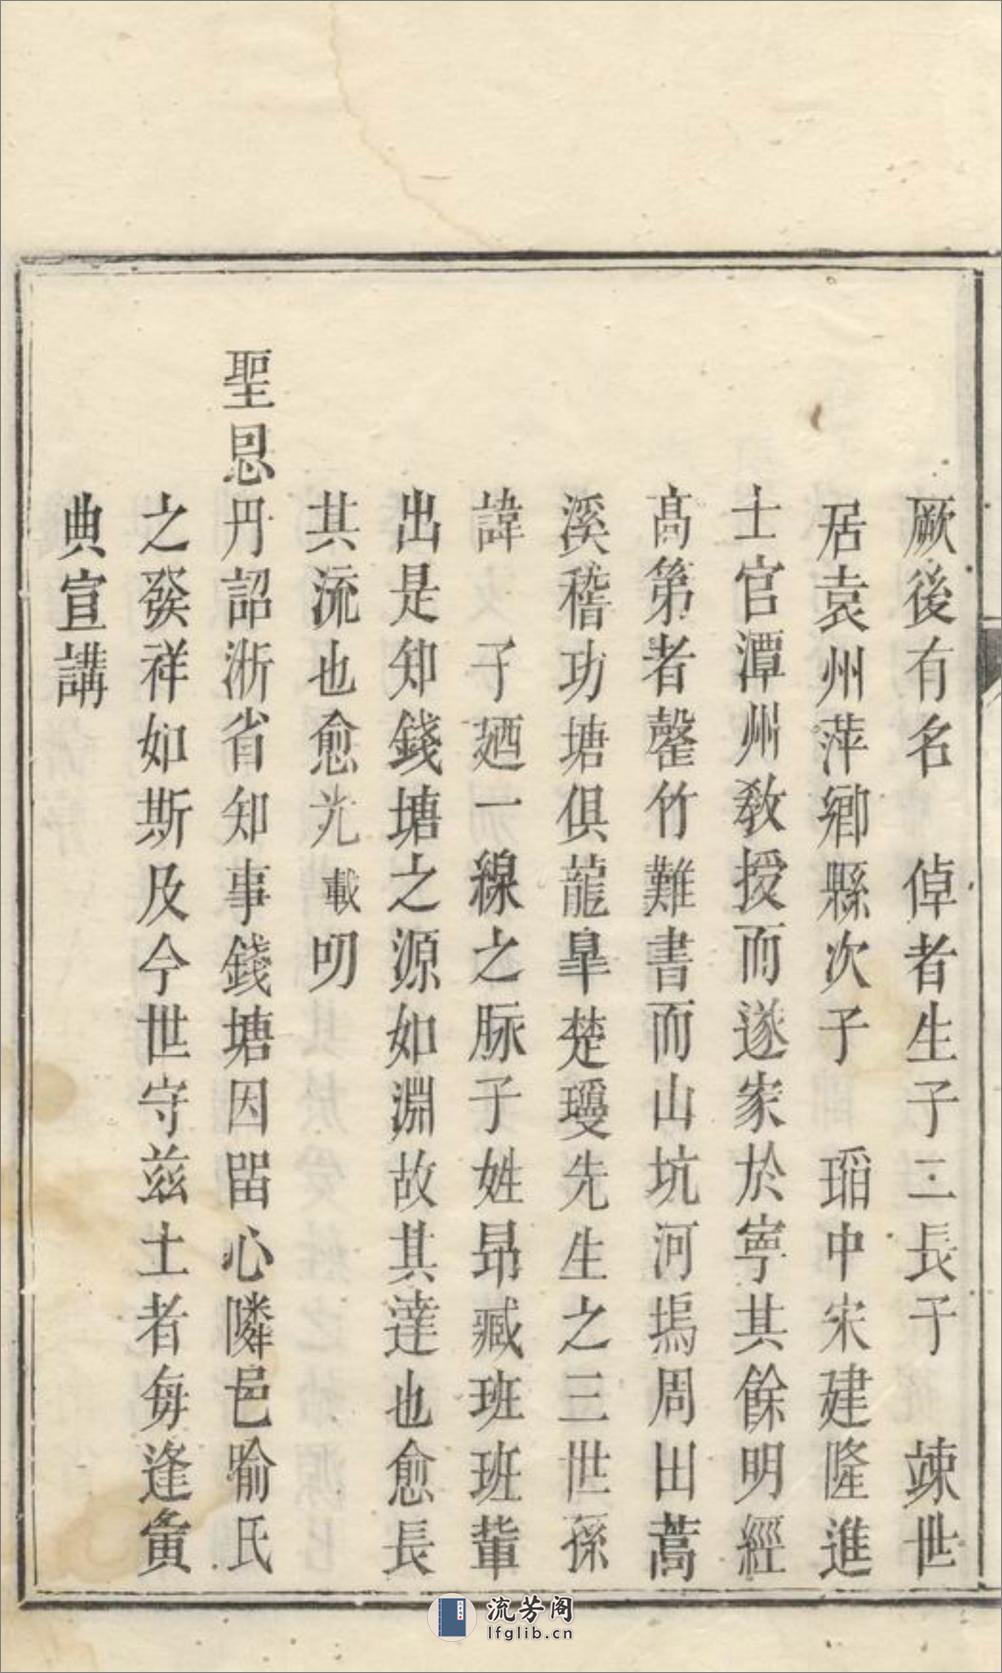 厥後有名　倬者生子二長子　竦世
居袁州萍鄉縣次子　瑫中宋建隆進
士官潭州教授而遂家於寧其餘明經
高第者罄竹難書而山坑河塢周田蒿
溪稽功塘俱龍臯楚璦先生之三世孫
諱　子廼一線之脉子姓昂臧班班輩
出是知錢塘之源如淵故其達也愈長
其流也愈光載明
聖恩丹詔浙省知事錢塘因留心隣邑喻氏
之發祥如斯及今世守兹土者每逢賓
典宣講
流芳阁
lfglib.cn